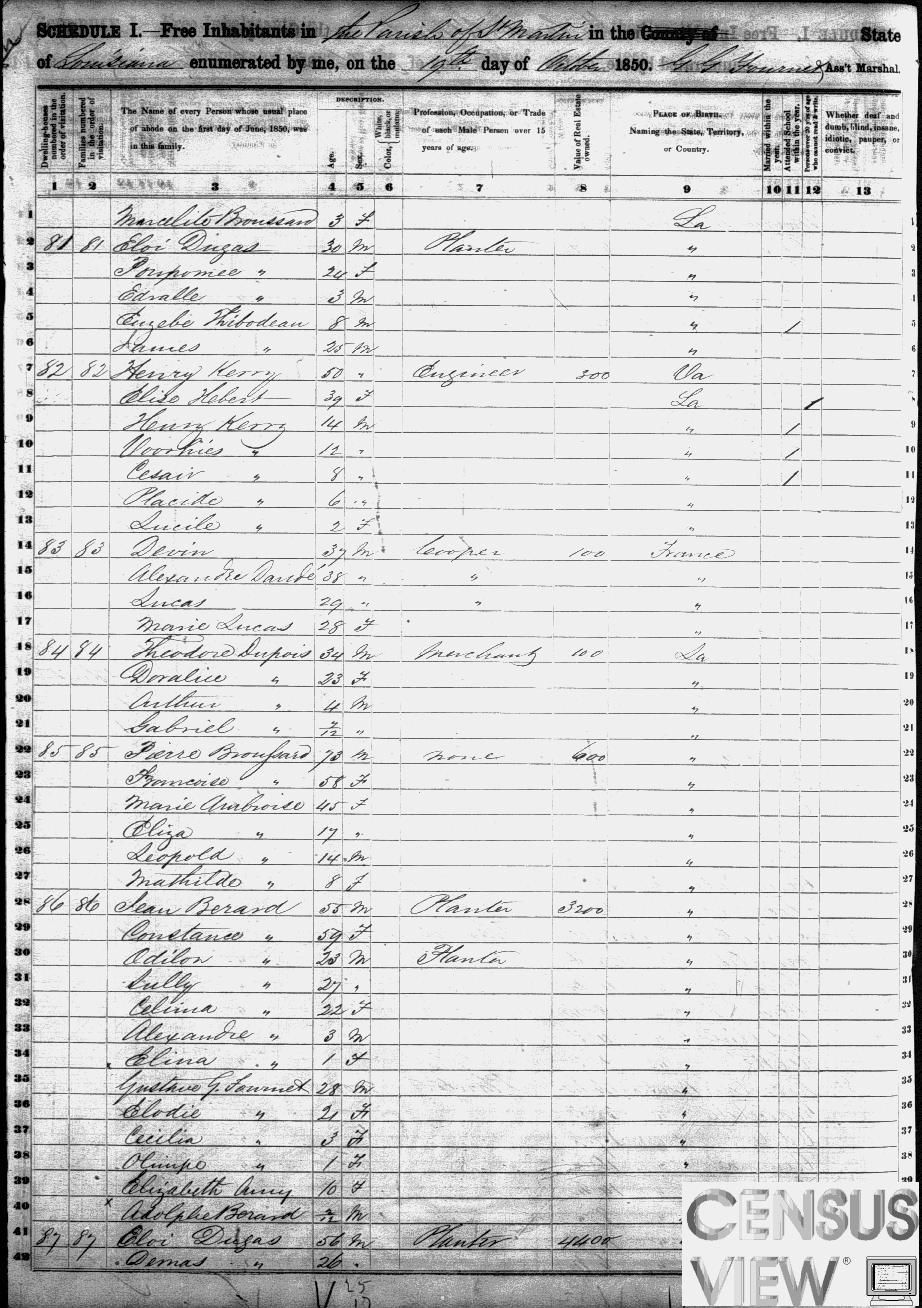 SCHEDULE I.—Free Inhabitants in the Parish of St Martin in the County of State
of Louisiana enumerated by me, on the 19th day of October 1850. G G Fournet Ass't Marshal.
Dwelling-houses numbered in the order of visitation.
Families numbered in the order of visitation.
The Name of every Person whose usual place of abode on the first day of June, 1850, was in this family.
DESCRIPTION.
Age.
Sex.
White, black, or mulatto.
Color,
Profession, Occupation, or Trade of each Male Person over 15 years of age.
Value of Real Estate owned.
PLACE OF BIRTH. Naming the State, Territory, or Country.
Married within the year.
Attended School within the year.
Persons over 20 y'rs of age who cannot read & write.
Whether deaf and dumb, blind, insane, idiotic, pauper, or convict.
1 2 3 4 5 6 7 8 9 10 11 12 13
1 Marcelite Broussard 3 F La 1
2 81 81 Eloi Dugas 30 M Planter " 2
3 Poupomee " 24 F " 3
4 Edvalle " 3 M " 4
5 Euzebe Thibodeau 8 M " / 5
6 James " 25 M " 6
7 82 82 Henry Kerry 50 " Engineer 300 Va 7
8 Elise Hebert 39 F La / 8
9 Henry Kerry 14 M " / 9
10 Voorhies " 12 " " / 10
11 Cesair " 8 " " / 11
12 Placide " 6 " " 12
13 Lucile " 2 F " 13
14 83 83 Devin 37 M Cooper 100 France 14
15 Alexandre Daudé 38 " " " 15
16 Lucas 29 " " " 16
17 Marie Lucas 28 F " 17
18 84 84 Theodore Dupois 34 M Merchant 100 La 18
19 Doralice " 23 F " 19
20 Arthur " 4 M " 20
21 Gabriel " 2/12 " " 21
22 85 85 Pierre Broussard 73 M none 600 " 22
23 Francoise " 58 F " 23
24 Marie Ambroise 45 F " 24
25 Eliza " 17 " " 25
26 Leopold " 14 M " 26
27 Mathilde " 8 F " 27
28 86 86 Jean Berard 55 M Planter 3200 " 28
29 Constance " 59 F " 29
30 Odilon " 23 M Planter " 30
31 Sully " 27 " " 31
32 Celima " 22 F " 32
33 Alexandre " 3 M " 33
34 Elina " 1 F " 34
35 Gustave G. Fournet 28 M " 35
36 Elodie " 21 F " 36
37 Cecilia " 3 F " 37
38 Olimpe " 1 F " 38
39 Elizabeth Amy 10 F 39
40 x Adolphe Berard 2/12 M
41 87 87 Eloi Dugas 56 M Planter 4400
42 Demas " 26 "
25
17
CENSUS
VIEW®